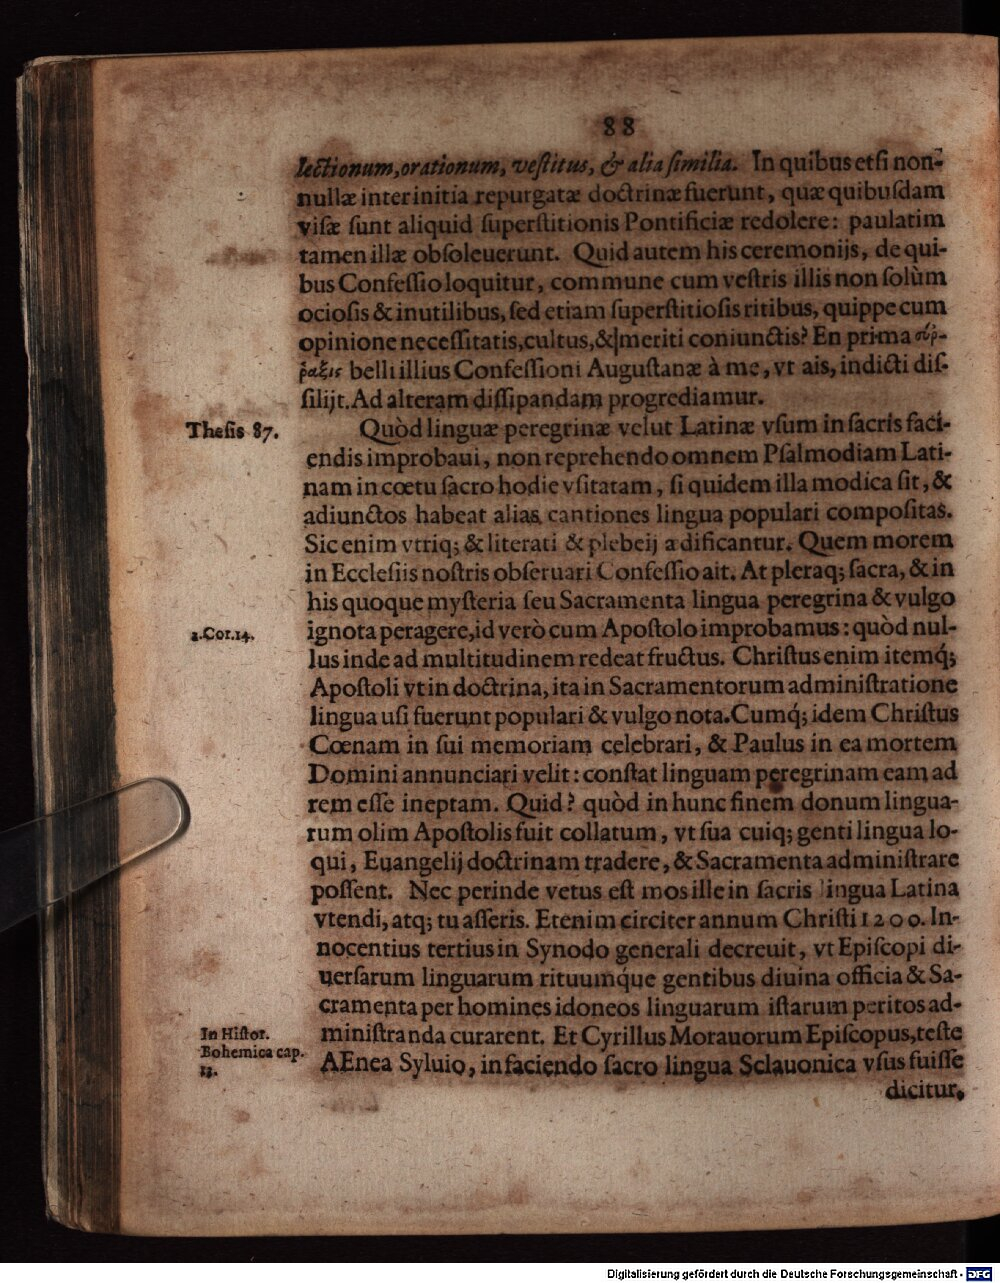 88
lectionum, orationum, veſtitus, & alia ſimilia. In quibus etſi non-
nullæ inter initia repurgatæ doctrinæ fuerunt, quæ quibuſdam
viſæ ſunt aliquid ſuperſtitionis Pontificiæ redolere: paulatim
tamen illæ obſoleuerunt. Quid autem his ceremonijs, de qui-
bus Confeſſio loquitur, commune cum veſtris illis non ſolùm
ocioſis & inutilibus, ſed etiam ſuperſtitioſis ritibus, quippe cum
opinione neceſſitatis, cultus, & meriti coniunctis? En prima σύῤ-
ῥαξις belli illius Confeſſioni Auguſtanæ à me, vt ais, indicti diſ-
ſilijt. Ad alteram diſſipandam progrediamur.
Theſis 87.
Quòd linguæ peregrinæ velut Latinæ vſum in ſacris faci-
endis improbaui, non reprehendo omnem Pſalmodiam Lati-
nam in cœtu ſacro hodie vſitatam, ſi quidem illa modica ſit, &
adiunctos habeat alias cantiones lingua populari compoſitas.
Sic enim vtriq; & literati & plebeij ædificantur. Quem morem
in Eccleſiis noſtris obſeruari Confeſſio ait. At pleraq; ſacra, & in
his quoque myſteria ſeu Sacramenta lingua peregrina & vulgo
1.Cor.14.
ignota peragere, id verò cum Apoſtolo improbamus: quòd nul-
lus inde ad multitudinem redeat fructus. Chriſtus enim itemq́;
Apoſtoli vt in doctrina, ita in Sacramentorum adminiſtratione
lingua uſi fuerunt populari & vulgo nota. Cumq́; idem Chriſtus
Cœnam in ſui memoriam celebrari, & Paulus in ea mortem
Domini annunciari velit: conſtat linguam peregrinam eam ad
rem eſſe ineptam. Quid? quòd in hunc finem donum lingua-
rum olim Apoſtolis fuit collatum, vt ſua cuiq; genti lingua lo-
qui, Euangelij doctrinam tradere, & Sacramenta adminiſtrare
poſſent. Nec perinde vetus eſt mos ille in ſacris lingua Latina
vtendi, atq; tu aſſeris. Etenim circiter annum Chriſti 1200. In-
nocentius tertius in Synodo generali decreuit, vt Epiſcopi di-
uerſarum linguarum rituumq́ue gentibus diuina officia & Sa-
cramenta per homines idoneos linguarum iſtarum peritos ad-
In Hiſtor.
Bohemica cap.
13.
miniſtranda curarent. Et Cyrillus Morauorum Epiſcopus, teſte
AEnea Syluio, in faciendo ſacro lingua Sclauonica vſus fuiſſe
dicitur.
Digitalisierung gefördert durch die Deutsche Forschungsgemeinschaft - DFG